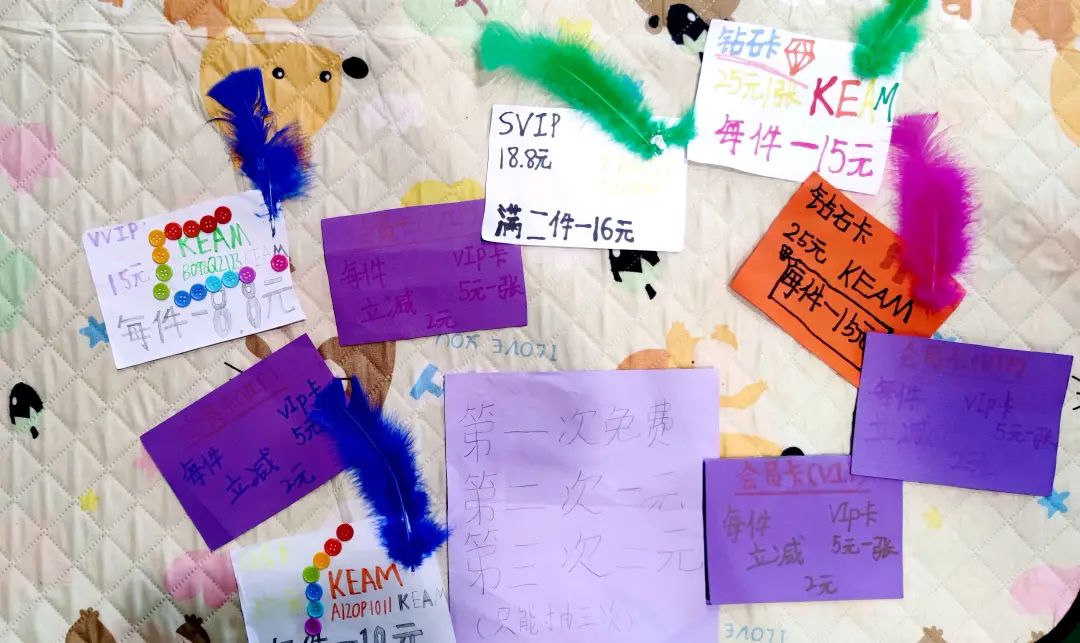 钻石卡
25元1张 KEAM
每件-15元
SVIP
18.8元
满二件-16元
VVIP
KEAM
15元
每件-8.8元
会员卡
VIP卡
每件
5元一张
立减
2元
钻石卡
25元 KEAM
每件-15元
会员卡(VIP)
每件 VIp卡
立减 5元一张
2元
VIp卡
5元
每件
立减
2元
第一次免费
第二次一元
第三次二元
(只能抽三次)
会员卡(VIP)
每件 VIp卡
立减 5元一张
2元
KEAM
A1ZOP1011 KEAM
每件-10元
ILOVE YOU
ILOVE